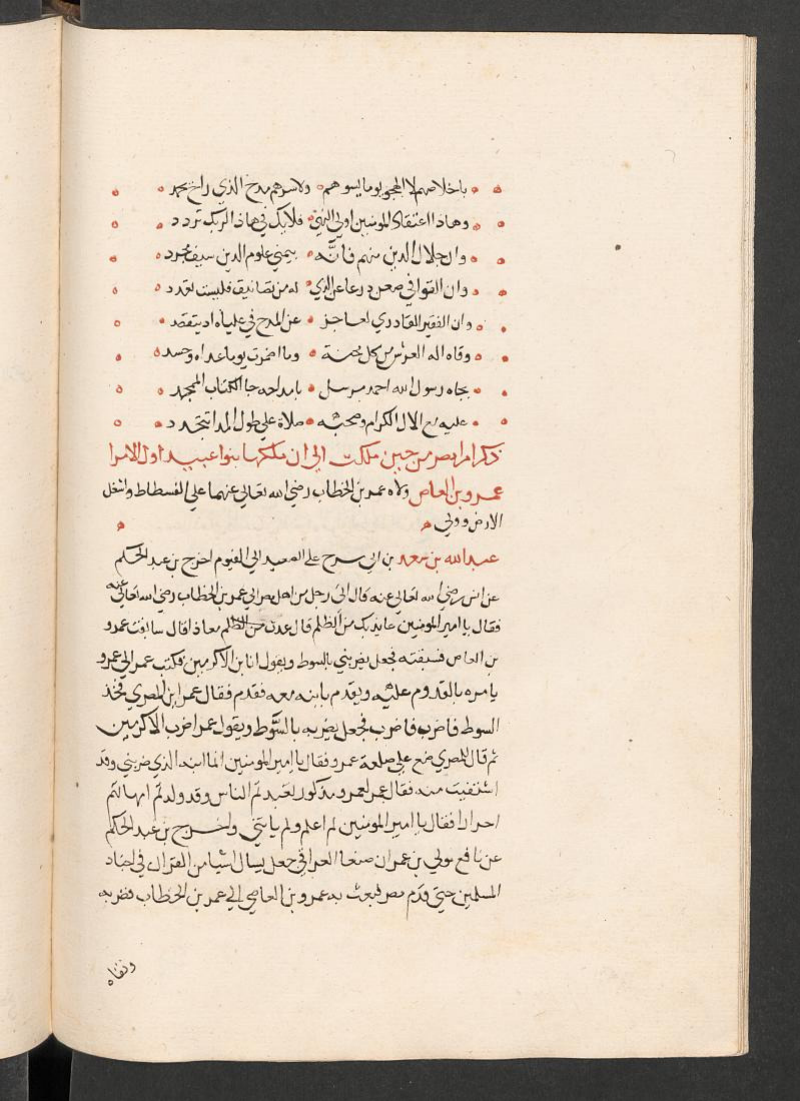 باخلاصهم لا الهجو يوما يسوهم ولا سرهم مدح الذي راح يحمد
وهاذا اعتقاد المومنين اولي النهى فلا يك في هاذا الريك تردد
وان جلال الدين منهم فانه بيمني علوم الدين سيف مجرد
وان القوافي ضعن ذرعا عن الذي له من تصانيف فليست تعدد
وان الفقير القادري لعاجز عن المدح في علياه اذ يتقصد
وقاه اله العرش من كل محنة وما اضمرت يوما عداه وحسد
بجاه رسول الله احمد مرسل بامداحه جا الكتاب الممجد
عليه مع الال الكرام وصحبه صلاة علي طول المدا تتجدد
ذكر امرا مصر من حين ملكت الي ان ملكها بنوا عبيد اول الامرا
عمرو بن العاص ولاه عمر بن الخطاب رضي الله تعالي عنهما علي الفسطاط واسفل
الارض وولي
عبد الله بن سعد بن ابي سرح علي الصعيد الي الفيوم اخرج بن عبد الحكم
عن انس رضي الله تعالي عنه قال اتي رجل من اهل مصر الي عمر بن الخطاب رضي الله تعالي عنه
فقال يا امير المومنين عايذ بك من الظلم قال عذت معاذا قال سابقت عمرو
بن العاص فسبقته فجعل يضربني بالسوط ويقول انا بن الاكرمين فكتب عمر الي عمرو
يامره بالقدوم عليه ويقدم بابنه معه فقدم فقال عمر اين المصري فخذ
السوط فاضرب فاضرب فجعل يضربه بالسوط ويقول عمر اضرب الاكرمين
ثم قال للمصري ضع علي صلعة عمرو فقال يا امير المومنين انما ابنه الذي ضربني وقد
اشتفيت منه فقال عمر لعمرو مذ كم تعبدتم الناس وقد ولدتم امهاتهم
احرارا فقال يا امير المومنين لم اعلم ولم ياتني واخرج بن عبد الحكم
عن نافع مولي بن عمر ان صبيغا العراقي جعل يسال اشيا من القران في اجناد
المسلمين حتي قدم مصر فبعث به عمرو بن العاصي الي عمر بن الخطاب فضربه
ونفاه